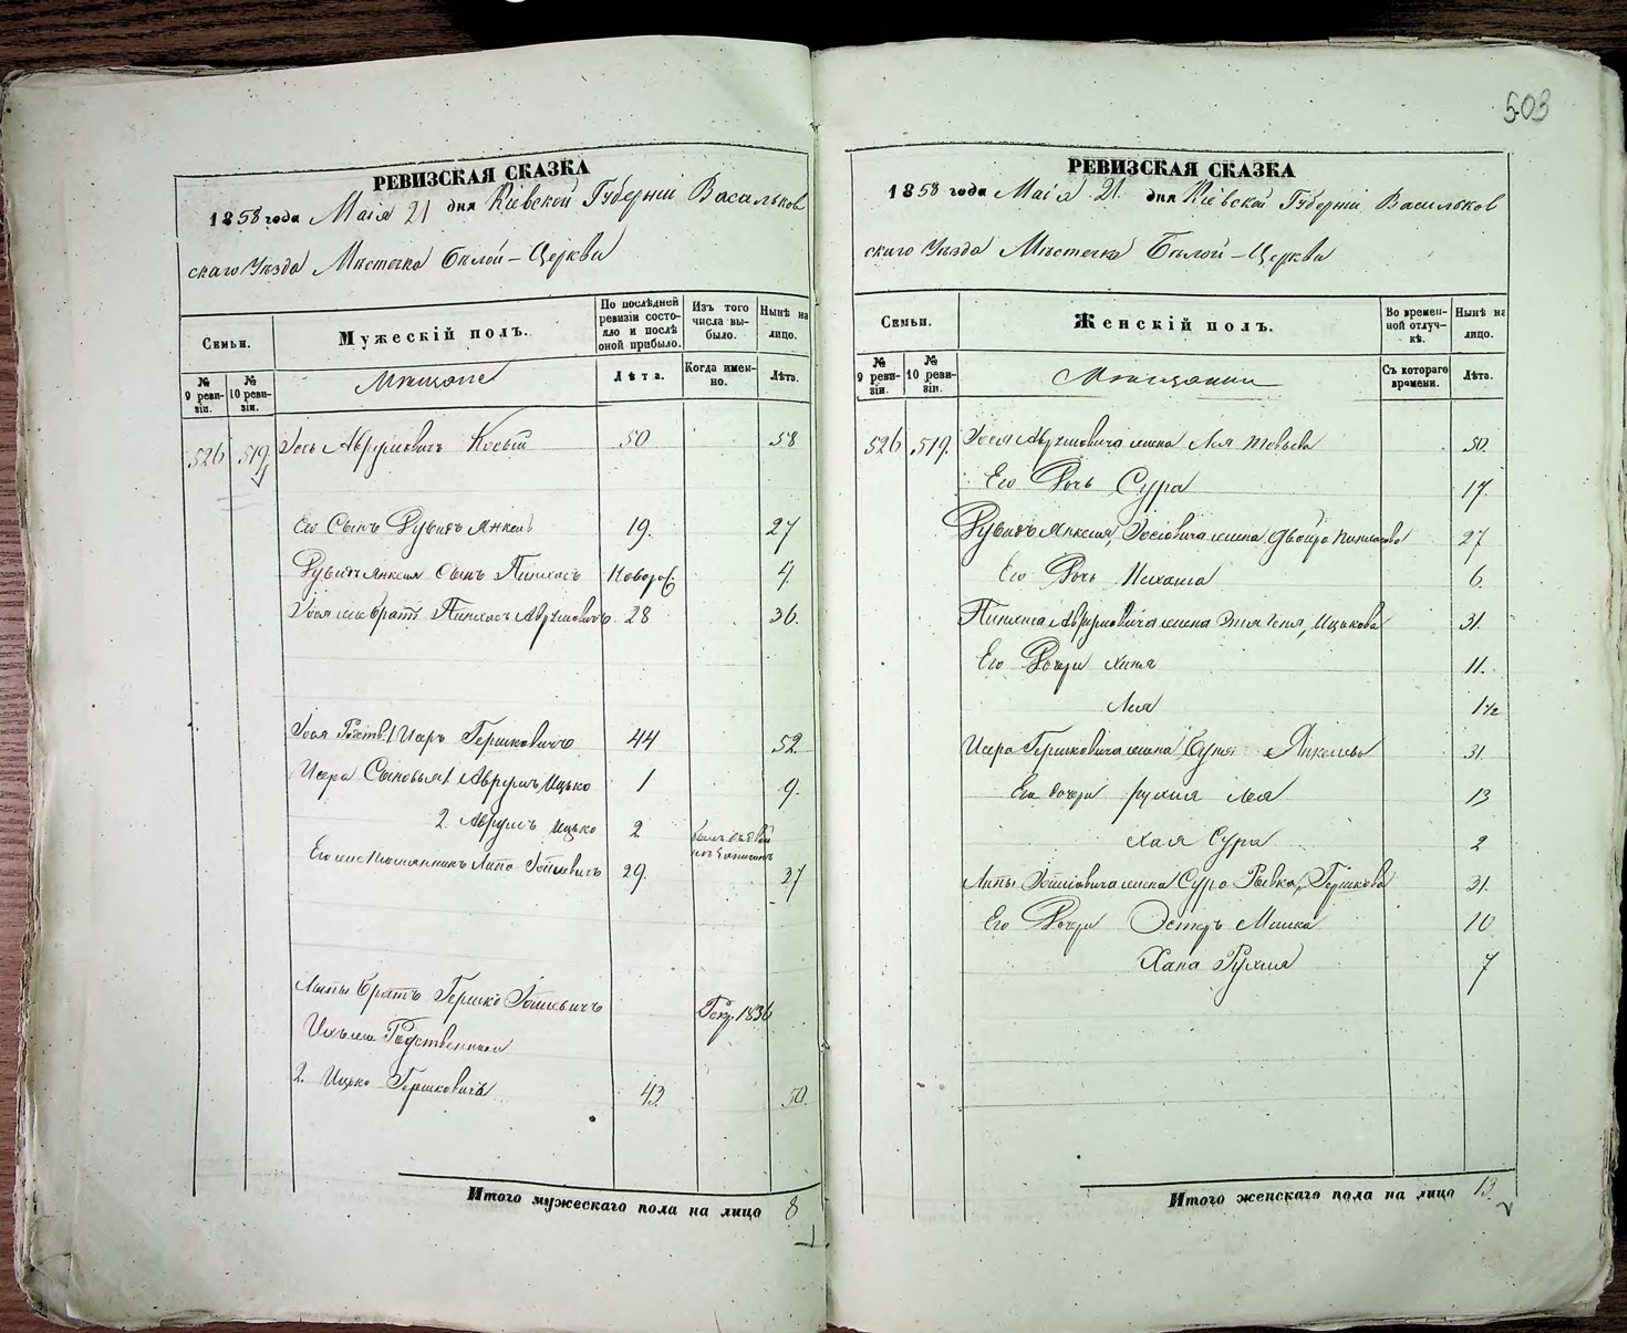 503
РЕВИЗСКАЯ СКАЗКА
1858 года Маія 21 дня Кіевской Губерніи Васильков
скаго Уѣзда Мѣстечка Бѣлой-Церкви
Семьи.
№ 9 ревизіи.
№ 10 ревизіи.
Мужескій полъ.
Мѣщане
По послѣдней ревизіи состояло и послѣ оной прибыло.
Лѣта.
Изъ того числа выбыло.
Когда именно.
Нынѣ на лицо.
Лѣта.
526 519 Іось Аврумовичъ Косый 50 58
Его Сынъ Дувидъ Янкель 19. 27
Дувидъ Янкеля Сынъ Пинхасъ Новорож. 4.
Іося братъ Пинхасъ Аврумовичъ 28 36.
Іося Родств. 1 Исеръ Гершковичъ 44 52
Исера Сыновья 1. Аврумъ Ицько 1 9.
2. Аврумъ Ицько 2
Его племянникъ Липа Іосіевичъ 29. 37
Липы братъ Гершко Іосіевичъ Рекр. 1836
Родственники
2. Ицько Гершковичъ 43 50.
Итого мужескаго пола на лицо 8
РЕВИЗСКАЯ СКАЗКА
1858 года Маія 21 дня Кіевской Губерніи Васильков
скаго Уѣзда Мѣстечка Бѣлой-Церкви
Семьи.
№ 9 ревизіи.
№ 10 ревизіи.
Женскій полъ.
Мѣщанки
Во временной отлучкѣ.
Съ котораго времени.
Нынѣ на лицо.
Лѣта.
526 519. Іося Аврумовича жена Лея Товьева 50.
Его Дочь Сура 17.
Дувидъ Янкеля, Іосіовича жена Двойра Пинхасова 27
Его Дочь Нехама 6.
Пинхаса Аврумовича жена Ицькова 31.
Его Дочери Хиня 11.
Лея 1½
Исера Гершковича жена Янкелева 31.
Его дочери Рухля Лея 13
Хая Сура 2
Липы Іосіовича жена Сура Рывка, Гершкова 31.
Его Дочери Эстеръ Малка 10
Хана Рухля 7
Итого женскаго пола на лицо 13